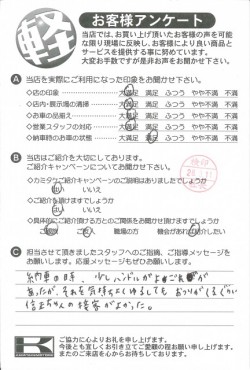 軽
お客様アンケート
当店では、お買い上げ頂いたお客様の声を可能
な限り現場に反映し、お客様により良い商品と
サービスを提供する事に努めています。
大変お手数ですが是非お声をお聞かせ下さい。
A 当店を実際にご利用になった印象をお聞かせ下さい。
◇店の印象 大満足 満足 ふつう やや不満 不満
◇店内・展示場の清掃 大満足 満足 ふつう やや不満 不満
◇お車の品揃え 大満足 満足 ふつう やや不満 不満
◇営業スタッフの対応 大満足 満足 ふつう やや不満 不満
◇納車時のお車の状態 大満足 満足 ふつう やや不満 不満
B 当店はご紹介を大切にしております。
ご紹介キャンペーンについてお聞かせ下さい。
◇カミタケご紹介キャンペーンのご説明はありましたでしょうか
はい いいえ
◇ご紹介を頂けますでしょうか
はい いいえ
◇具体的にご紹介頂ける方とのご関係をお聞かせ頂けますでしょうか
ご家族 ご友人 職場の方 機会があればご紹介したい
C 担当させて頂きましたスタッフへのご指摘、ご指導メッセージを
お願いします。応援メッセージもぜひお願いします。
納車の時、少しハンドルがよごれが
あったが、それを気持よくゆるしても おつりがくるぐらい
K
ご協力に心よりお礼を申し上げます。
今後とも宜しくお引き立てご愛顧の程お願い申し上げます。
またのご来店を心からお待ちしております。